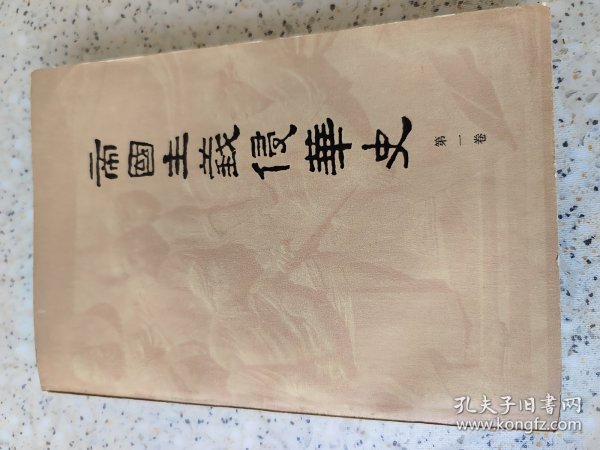 帝國主義侵華史
第一卷
孔夫子旧書网
www.kongfz.com